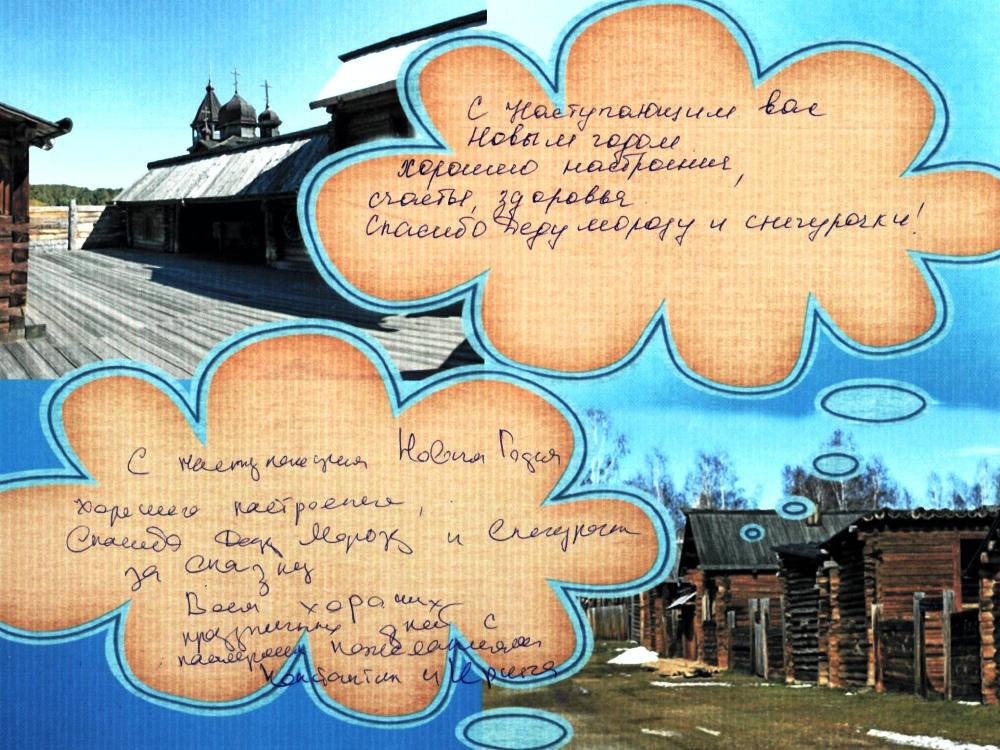 С Наступающим вас
Новым годом
хорошего настроения,
счастья, здоровья
Спасибо Деду морозу и снегурочки!
С наступающим Новым Годом
Хорошего настроения,
Спасибо Деду Морозу и Снегурочке
за сказку
Всем хороших
праздничных дней с
наилучшими пожеланиями
Константин и Ирина